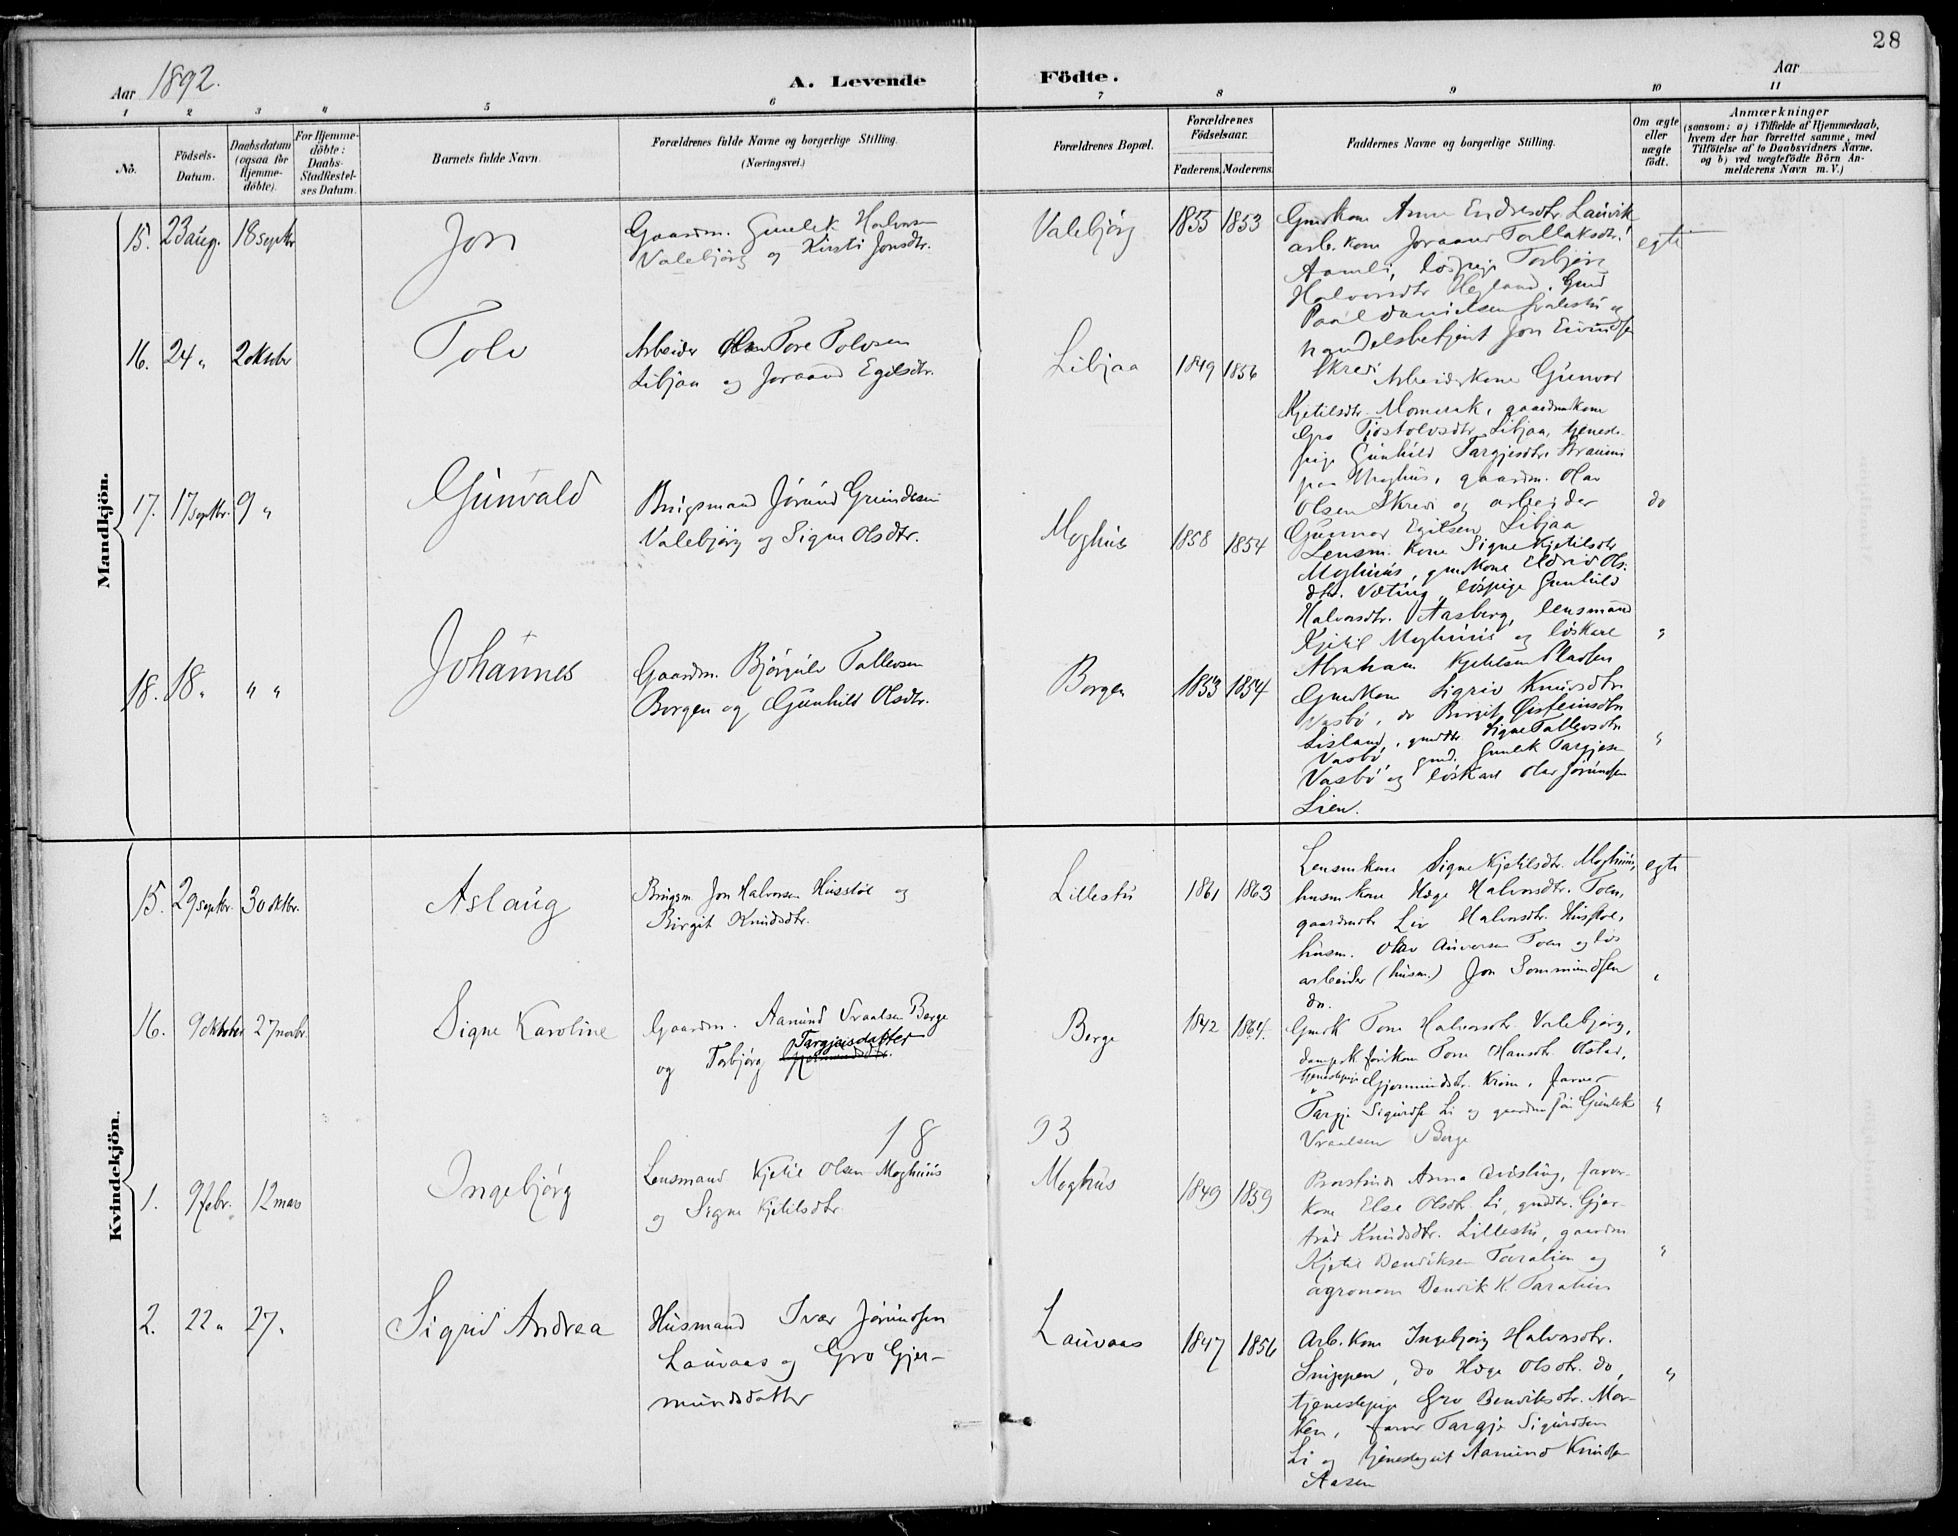 28
Aar 1892.
A. Levende Födte.
Aar
1 2 3 4 5 6 7 8 9 10 11
Nô.
Födsels-Datum.
Daabsdatum (ogsaa for Hjemme-döbte).
For Hjemme-döbte: Daabs-Stadfæstel-ses Datum.
Barnets fulde Navn.
Forældrenes fulde Navne og borgerlige Stilling.
(Næringsvei.)
Forældrenes Bopæl.
Forældrenes Födselsaar.
Faderens. Moderens.
Faddernes Navne og borgerlige Stilling.
Om ægte eller uægte födt.
Anmærkninger
(saasom: a) i Tilfælde af Hjemmedaab, hvem der har forrettet samme, med Tilföielse af to Daabsvidners Navne, og b) ved uægtefödte Börn An-melderens Navn m. V.)
Mandkjön.
15. 23 aug. 18 septbr Jon
Gaardm. Gunlek Halvorsen
Valebjörg og Kirsti Jonsdtr.
Valebjörg 1855 1853
Gmdkone Anne Endresdtr. Lauvik
arb.kone Joraand Tallaksdtr.
Aamli, löspige Torbjörg
Halvorsdtr Hegland, Gmd
Paal Danielsen og
handelsbetjent Jon Eivindsen
Skrei
egte
16. 24 " 2 oktbr Tolv
Arbeider Tore Tolvsen
Libjaa og Joraand Egilsdtr.
Libjaa 1849 1856
Arbeiderkone Gunvor
Kjetilsdtr. Momrak, gaardmkone
Gro Tjostolvsdtr. Libjaa, tjeneste-
pige Gunhild Targjesdtr.
paa Moghus, gaardm. Olav
Olsen Skrei og arbeider
Gunnar Egilsen Libjaa
do
17. 17 septbr. 9 " Gunvald
Brugsmand Jörund
Valebjörg og Signe Olsdtr.
Moghus 1858 1854
Lensm. kone Signe Kjetilsdtr
Moghus, gmdkone Eldrid Ols-
dtr. Væting, löspige Gunhild
Halvorsdtr. Aasberg, lensmand
Kjetil Moghus og löskarl
Abraham Kjetilsen Pladsen
"
18. 18 " " " Johannes
Gaardm. Björgulv Tallevsen
Borgen og Gunhild Olsdtr.
Borgen 1853 1854
Gmdkone Sigrid Knudsdtr.
Vasbö, do Birgit Öisteinsdtr
Lisland, gmddtr. Signe Tallevsdtr
Vasbö, gmd. Gunlek Targjesen
Vasbö og löskarl Olav Jörundsen
Lien.
"
Kvindekjön.
15. 29 septbr. 30 oktbr. Aslaug
Brugsm Jon Halvorsen Husstöl og
Birgit Knudsdtr.
Lillestu 1861 1863
Lensmkone Signe Kjetilsdtr. Moghus,
husmkone Hæge Halvorsdtr. Toen,
gaardmdtr Liv Halvorsdtr. Husstöl,
husm. Olav Toen og lös
arbeider (husm.) Jon
do.
egte
"
16. 9 oktober 27 novbr. Signe Karoline
Gaardm. Aamund Vraalsen Berge
og Torbjörg Targjeisdatter
Berge 1842 1864.
Gmdk Tone Halvorsdtr. Valebjörg,
Tone Hansdtr.
tjenestepige Gjermundsdtr. Krom, farver
Targje Sigurdsen Li og Gunlek
Vraalsen Berge
"
18 93
1. 9 febr. 12 mars Ingebjörg
Lensmand Kjetil Olsen Moghus
og Signe Kjetilsdtr.
Moghus 1849 1859
Anna Qvisling, farver-
kone Else Olsdtr. Li, gmddtr. Gjer-
trud Knudsdtr. Lillestu, gaardm
Kjetil Bendiksen Taralien og
agronom Bendik K. Taralien
"
2. 22 " 27 " Sigrid Andrea
Husmand Ivar Jörundsen
Lauvaas og Gro Gjer-
mundsdatter
Lauvaas 1847 1856
Arb.kone Ingebjörg Halvorsdtr.
Snippen, do Hæge Olsdtr. do,
tjenestepige Gro Bendiksdtr. Mor-
ken, farver Targje Sigurdsen
Li og tjenestegut Aamund Knudsen
Aasen
"